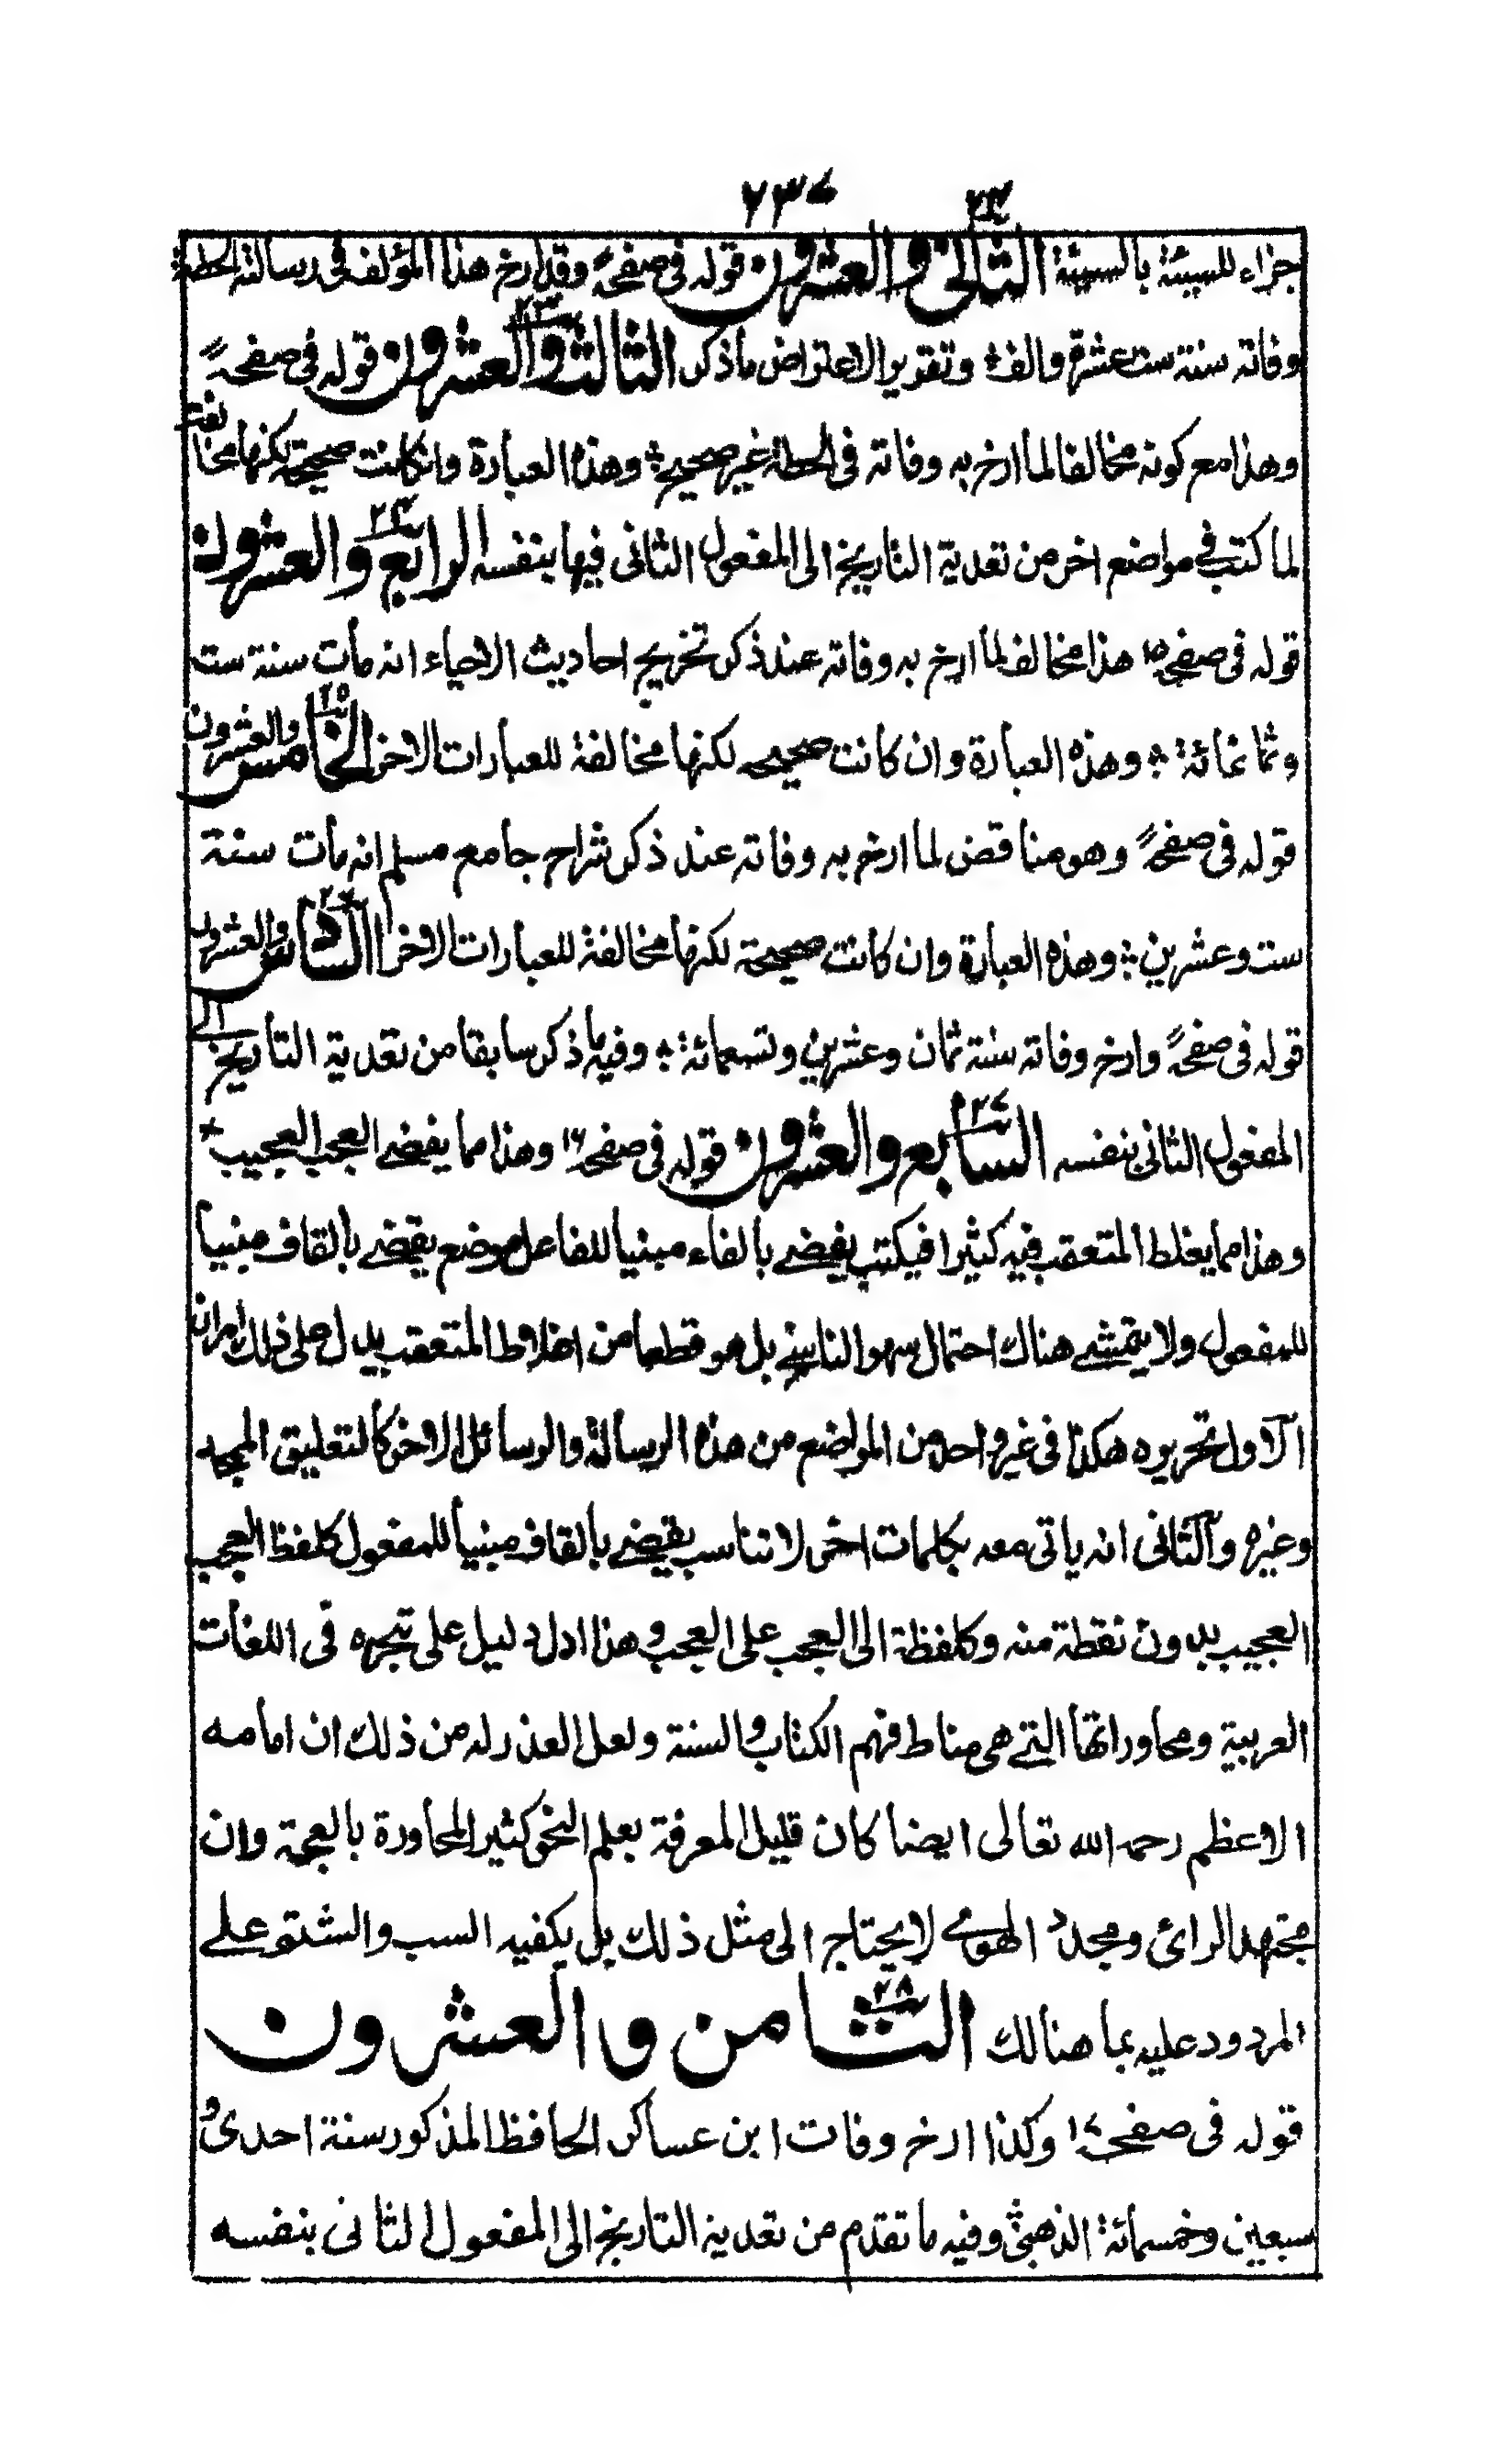 ٢٣٧
جزاء للسيئة بالسيئة الثانى والعشرون قوله فى صفحة وقد ارخ هذا المؤلف فى رسالته الحطة
وفاته سنة ست عشرة والف؛ وتقرير الاعتراض ما ذكر الثالث والعشرون قوله فى صفحة
وهذا مع كونه مخالفا لما ارخ به وفاته فى الحطة غير صحيح؛ وهذه العبارة وان كانت صحيحة لكنها مخالفة
لما كتب فى مواضع اخر من تعدية التاريخ الى المفعول الثانى فيها بنفسه الرابع والعشرون
قوله فى صفحه ١٥ هذا مخالف لما ارخ به وفاته عند ذكر تخريج احاديث الاحياء انه مات سنة ست
وثمانمائة؛ وهذه العبارة وان كانت صحيحه لكنها مخالفة للعبارات الاخر الخامس والعشرون
قوله فى صفحة وهو مناقض لما ارخ به وفاته عند ذكر شراح جامع مسلم انه مات سنة
ست وعشرين؛ وهذه العبارة وان كانت صحيحة لكنها مخالفة للعبارات الاخر السادس والعشرون
قوله فى صفحة وارخ وفاته سنة ثمان وعشرين وتسعمائة؛ وفيه ما ذكر سابقا من تعدية التاريخ الى
المفعول الثانى بنفسه السابع والعشرون قوله فى صفحه ١٦ وهذا مما يفضے العجب العجيب
وهذا مما يغلط المتعقب فيه كثيرا فيكتب يفضے بالفاء مبنيا للفاعل موضع يقضے بالقاف مبنيا
للمفعول ولا يتمشے هناك احتمال سهو الناسخ بل هو قطعا من اغلاط المتعقب يدل على ذلك امران
الاول تحريره هكذا فى غير واحد من المواضع من هذه الرسالة والرسائل الاخر كالتعليق الممجد
وغيره والثانى انه ياتى معه بكلمات اخر لا تناسب يقضے بالقاف مبنيا للمفعول كلفظ العجب
العجيب بدون نقطة منه وكلفظة الى العجب على العجب وهذا ادل دليل على تبحره فى اللغات
العربية ومحاوراتها التے هى مناط فهم الكتاب والسنة ولعل العذر له من ذلك ان امامه
الاعظم رحمه الله تعالى ايضا كان قليل المعرفة بعلم النحو كثير المحاورة بالعجمة وان
مجتهد الرائ ومجدد الهوے لا يحتاج الى مثل ذلك بل يكفيه السب والشتم علے
المردود عليه بما هنالك الثامن والعشرون
قوله فى صفحه ١٧ وكذا ارخ وفات ابن عساكر الحافظ المذكور سنة احدى و
سبعين وخمسمائة الذهبى وفيه ما تقدم من تعدية التاريخ الى المفعول الثانى بنفسه